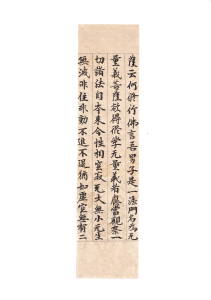 薩云何修行佛言善男子是一法門名為无
量義菩薩欲得修學无量義者應當觀察一
切諸法自本来今性相空寂无大無小无生
無滅非住非動不進不退猶如虛空無有二